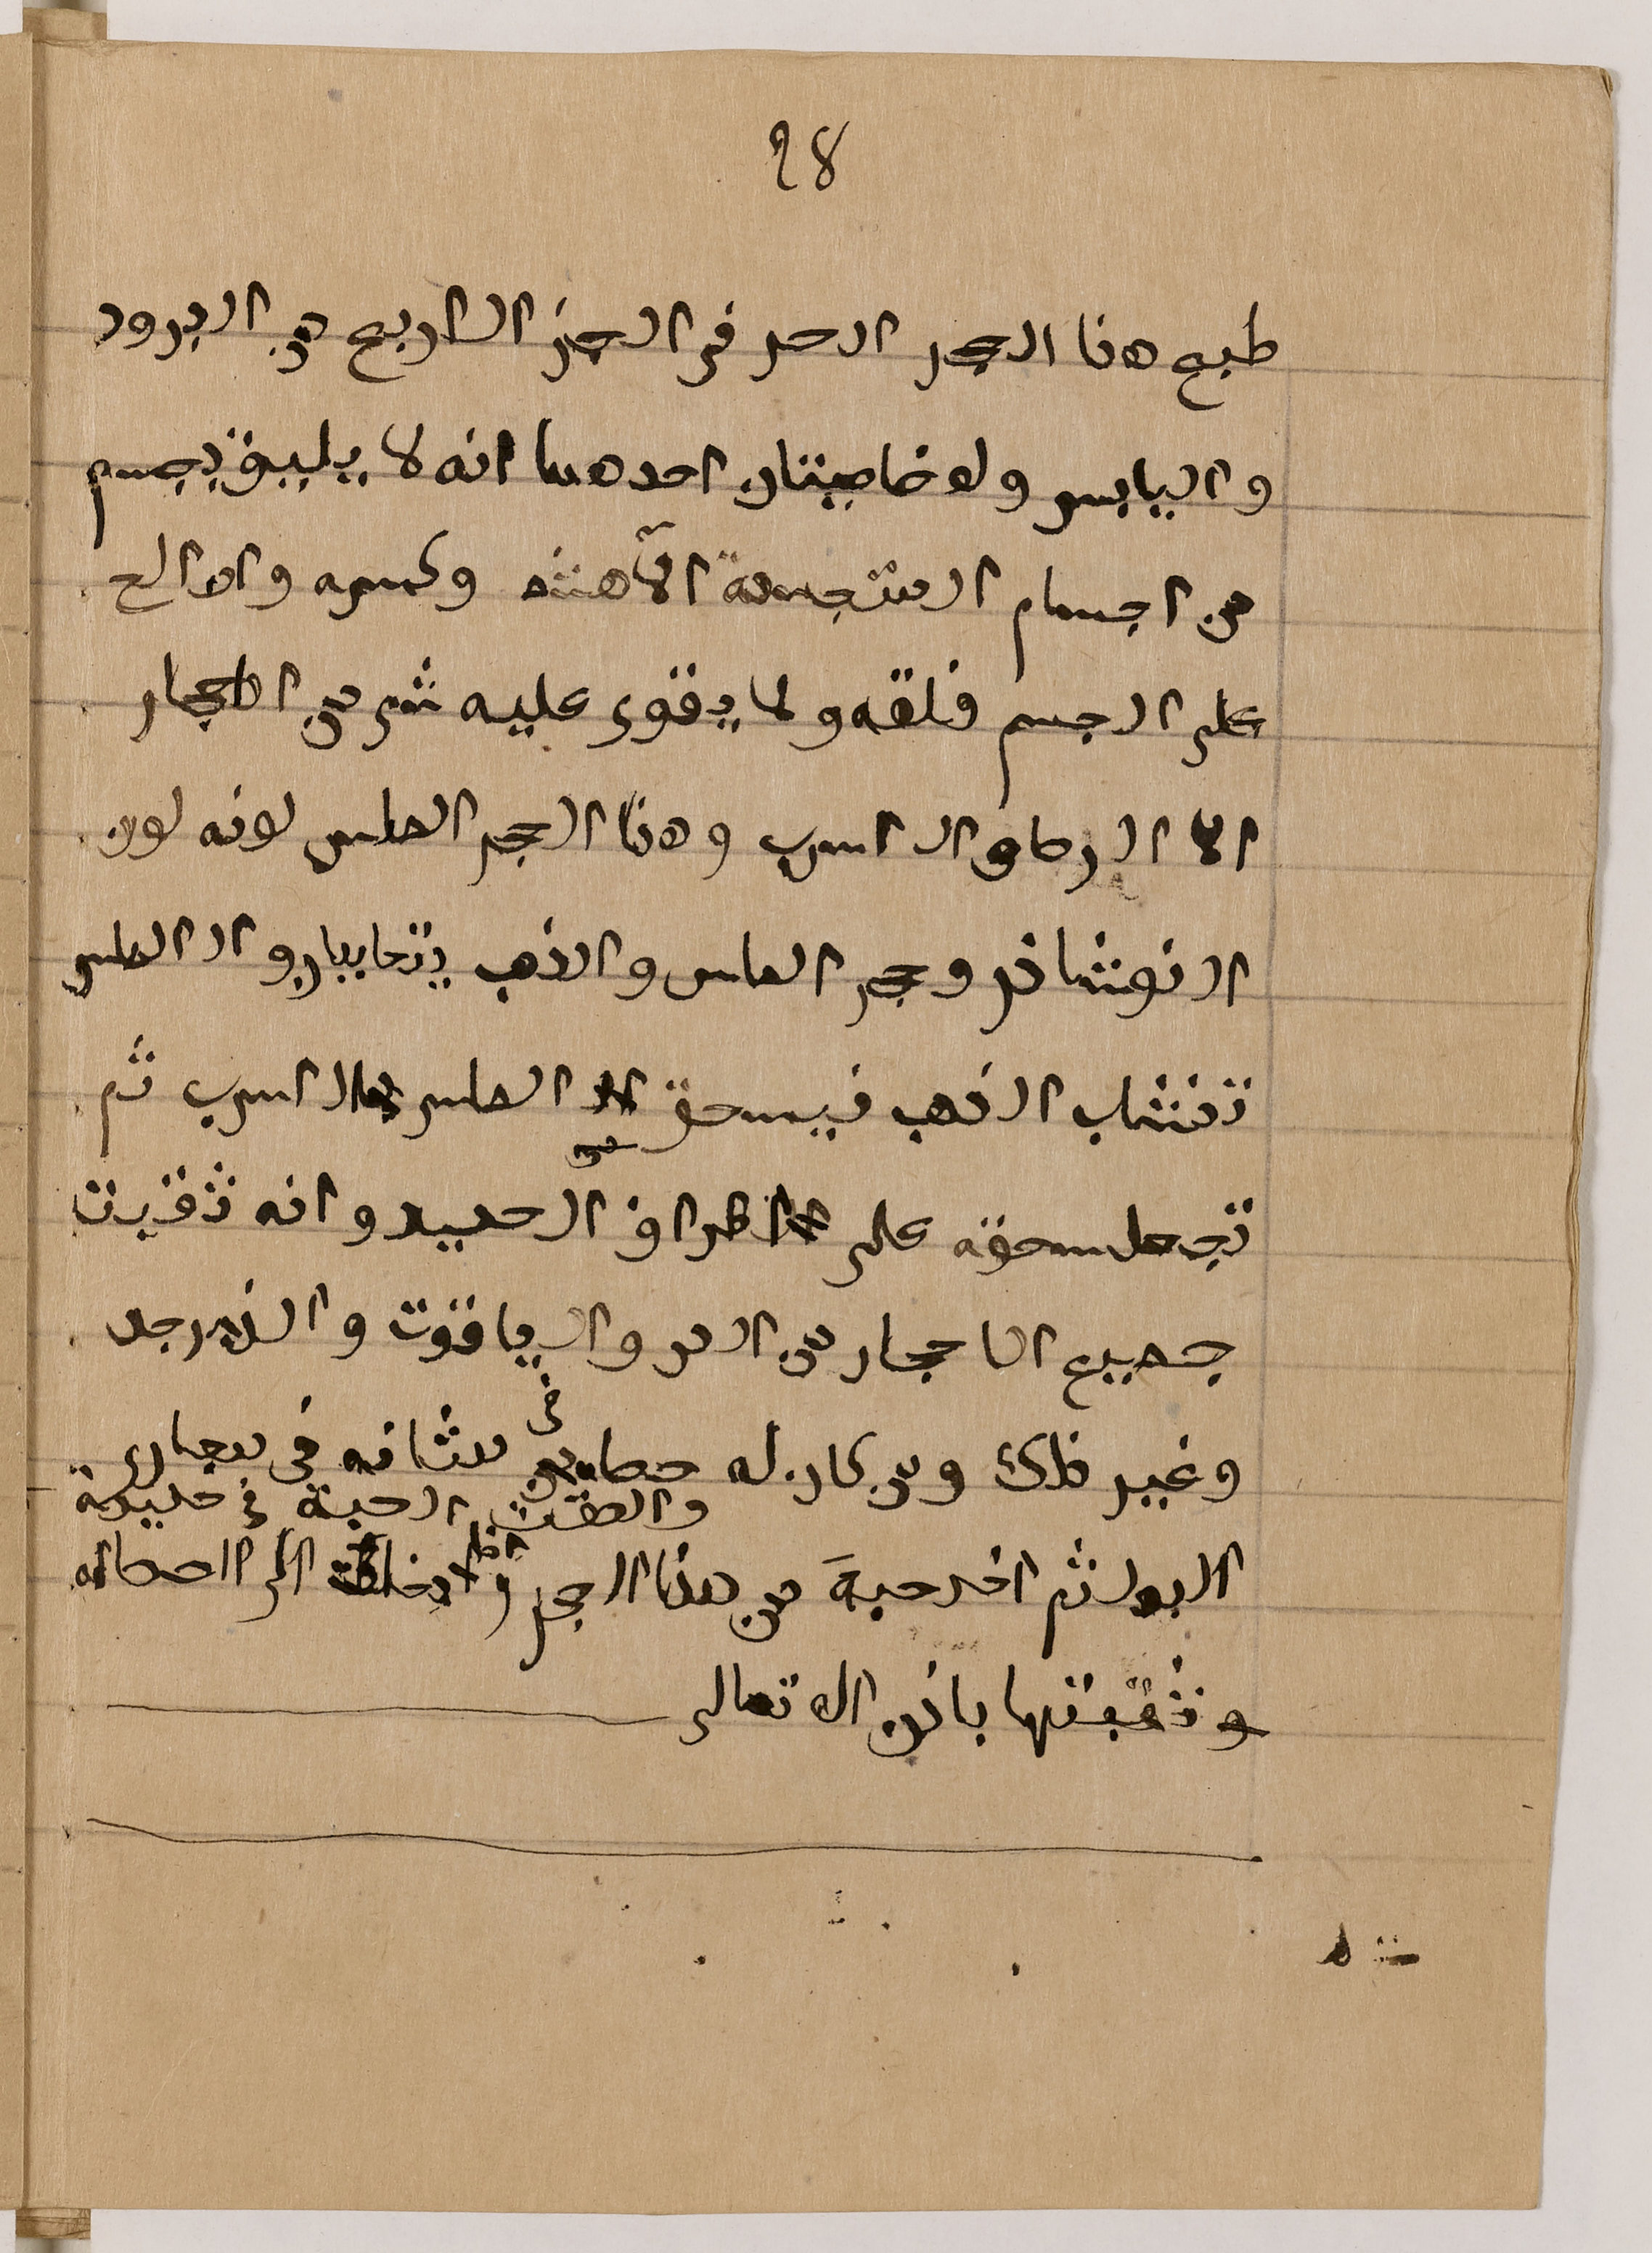 28
طبع هذا الحجر الحر فى الجز الرابع من البرود
و اليابس و له خاصيتان احدهما انه لا يليق بجسم
من اجسام المتجسدة الا هشه وكسره و الح
على الجسم فلقه و لا يقوى عليه شى من الاحجار
الا الرصاص الاسرب و هذا الحجر الماس لونه لون
النوشاذر و حجر الماس و الذهب يتحابان و الماس
تفتشاب الذهب فيسحق الماس بالاسرب ثم
تجعل سحقه على اطراف الحديد و انه تثقبت
جميع الاحجار من الدر و الياقوت و الزبرجد
و غير ذلك و من كان له حصا فى مثانه فى مجارى
و الصقت الحبة فى حديدة
البول ثم اخذ حبة من هذا الحجر و ادخلت الى الحصاه
و ثقبتها باذن الله تعالى